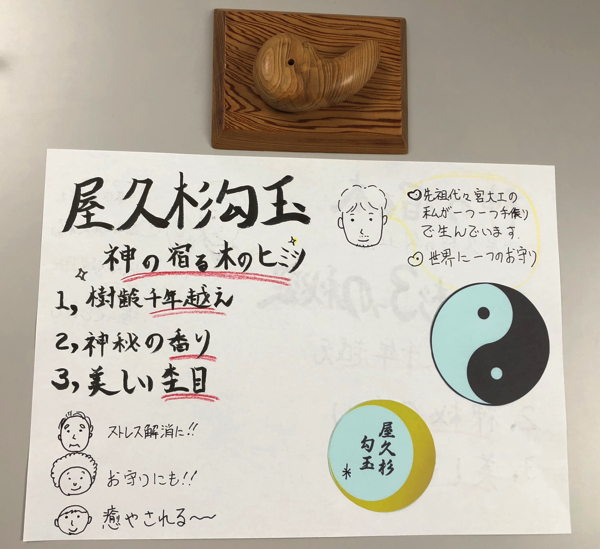 屋久杉勾玉
神の宿る木のヒミツ
1, 樹齢千年越え
2, 神秘の香り
3, 美しい杢目
先祖代々宮大工の
私が一つ一つ手作り
で生んでいます.
世界に一つのお守り
ストレス解消に!!
お守りにも!!
癒やされる〜〜
屋久杉
勾玉